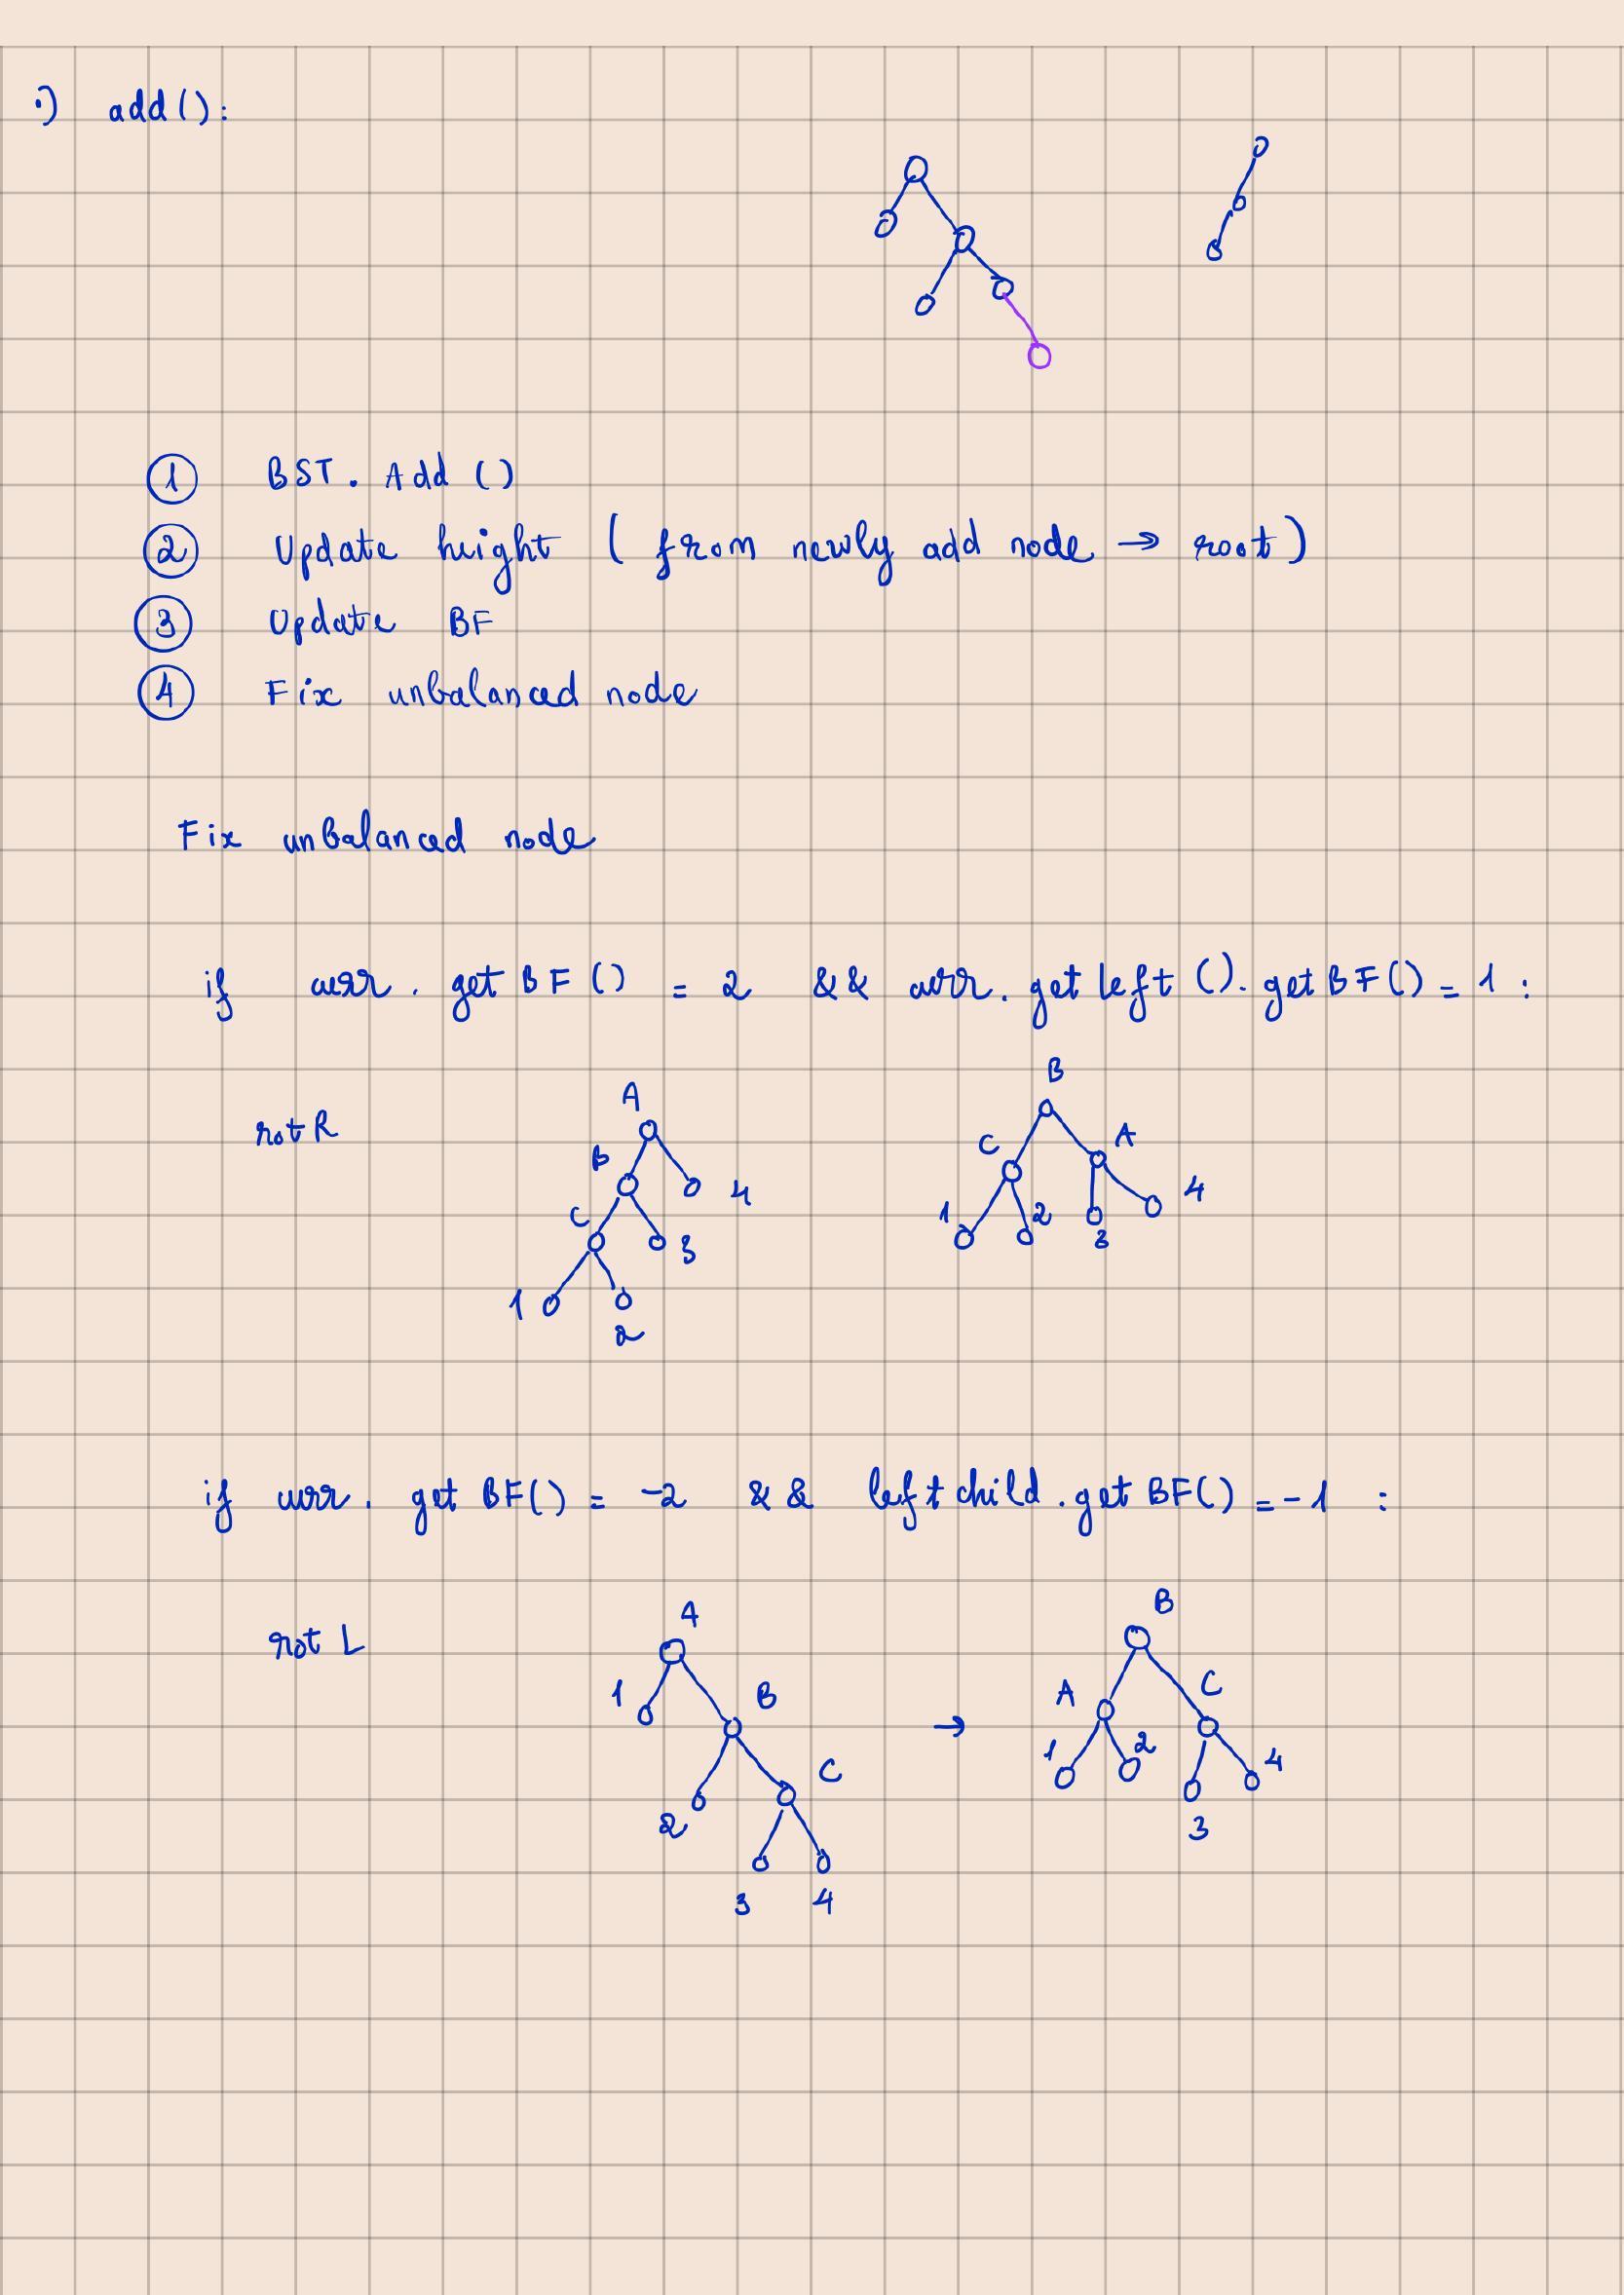 •) add():
① BST. Add ()
② Update height ( from newly add node → root )
③ Update BF
④ Fix unbalanced node
Fix unbalanced node
if curr. getBF() = 2 && curr. getleft(). getBF() = 1 :
rotR
A
B
C
1
2
3
4
B
C
A
1
2
3
4
if curr. getBF() = -2 && leftchild. getBF() = -1 :
rot L
A
1
B
2
C
3
4
→
B
A
C
1
2
3
4